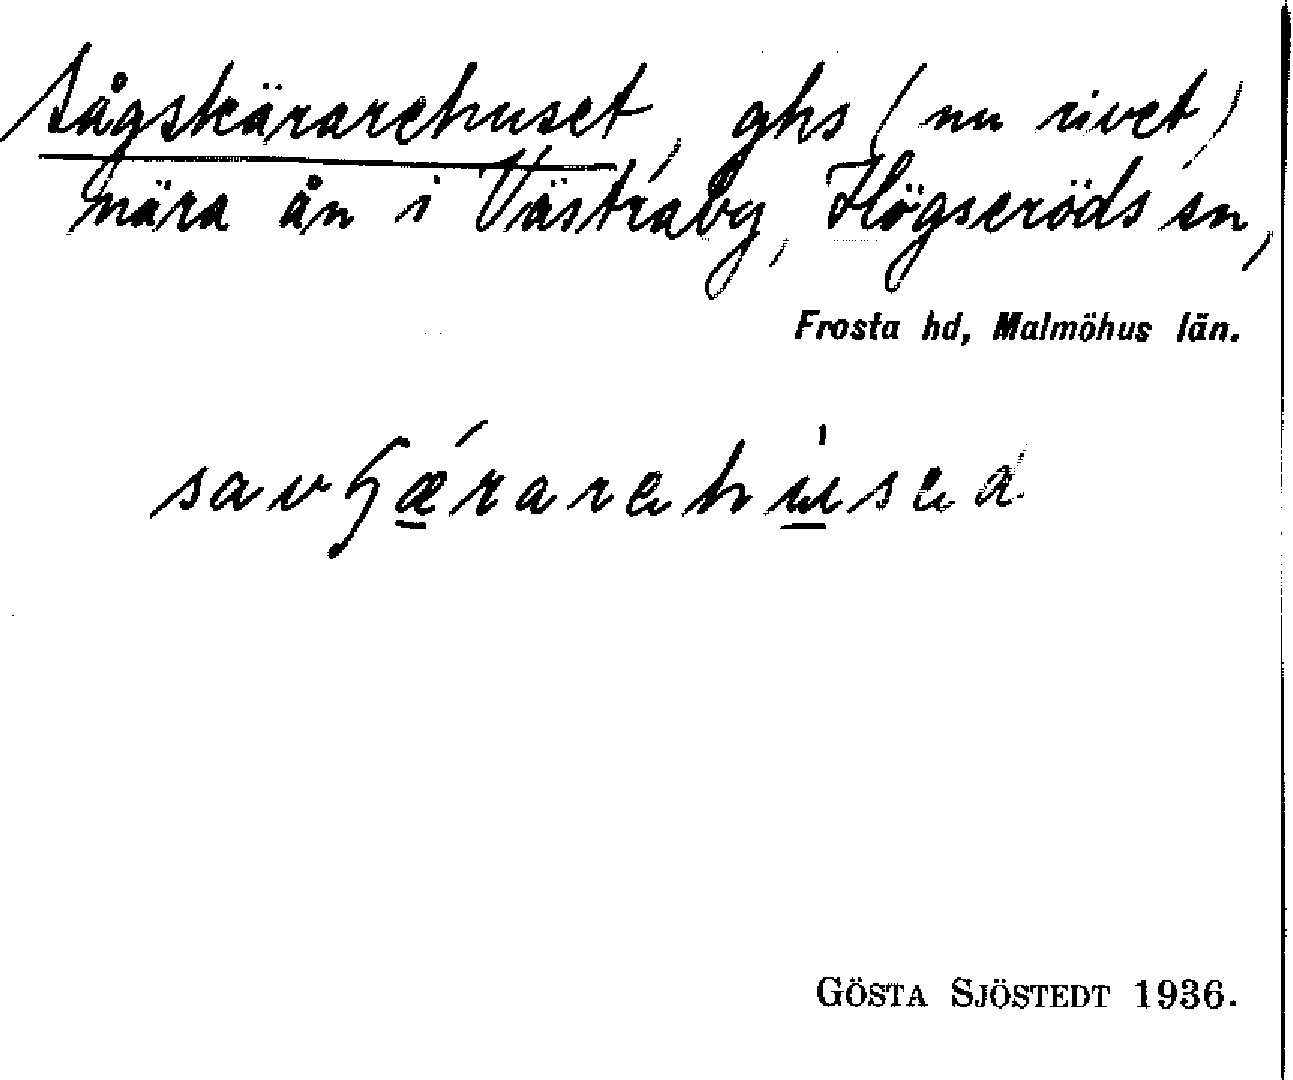 Sågskärarehuset, ghs (nu rivet)
nära ån i Västraby, Högseröds sn,
Frosta hd, Malmöhus län.
GÖSTA SJÖSTEDT 1936.